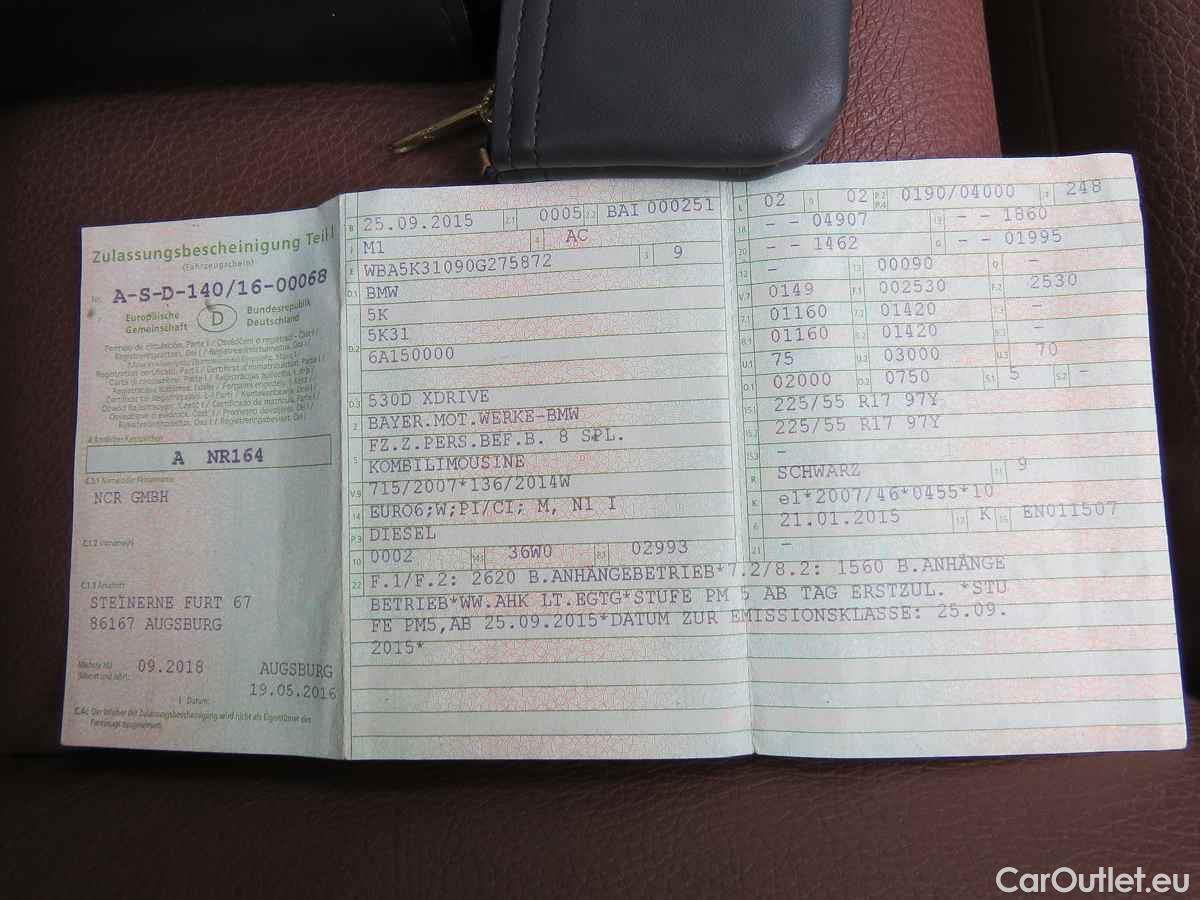 Zulassungsbescheinigung Teil I
(Fahrzeugschein)
Nr. A-S-D-140/16-00068
Europäische Gemeinschaft
D
Bundesrepublik Deutschland
A NR164
NCR GMBH
C.1.3 Anschrift
STEINERNE FURT 67
86167 AUGSBURG
09.2018 AUGSBURG
19.05.2016
B 25.09.2015 2.1 0005 2.2 BAI 000251
J M1 4 AC
E WBA5K31090G275872 3 9
D.1 BMW
5K
D.2 5K31
6A150000
D.3 530D XDRIVE
2 BAYER.MOT.WERKE-BMW
5 FZ.Z.PERS.BEF.B. 8 SPL.
KOMBILIMOUSINE
V.9 715/2007*136/2014W
14 EURO6;W;PI/CI; M, N1 I
P.3 DIESEL
10 0002 14.1 36W0 P.1 02993
L 02 9 02 P.2 P.4 0190/04000 T 248
18 - - 04907 19 - - 1860
20 - - 1462 G - - 01995
12 - 13 00090 Q -
V.7 0149 F.1 002530 F.2 2530
7.1 01160 7.2 01420 7.3 -
8.1 01160 8.2 01420 8.3 -
U.1 75 U.2 03000 U.3 70
O.1 02000 O.2 0750 S.1 5 S.2 -
15.1 225/55 R17 97Y
15.2 225/55 R17 97Y
15.3 -
R SCHWARZ 11 9
K e1*2007/46*0455*10
6 21.01.2015 17 K 16 EN011507
21 -
22 F.1/F.2: 2620 B.ANHÄNGEBETRIEB*7.2/8.2: 1560 B.ANHÄNGE
BETRIEB*WW.AHK LT.EGTG*STUFE PM 5 AB TAG ERSTZUL. *STU
FE PM5,AB 25.09.2015*DATUM ZUR EMISSIONSKLASSE: 25.09.
2015*
CarOutlet.eu